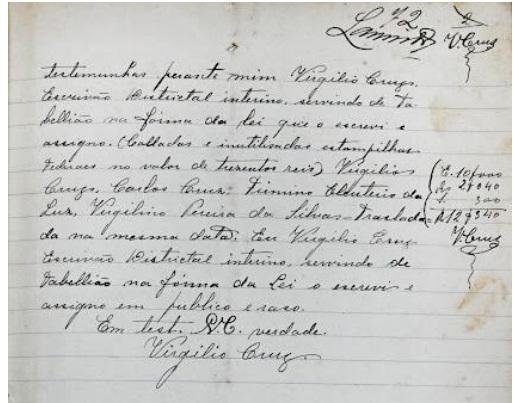 72
2
V. Cruz
testemunhas perante mim Virgilio Cruz,
Escrivão Districtal interino, servindo de ta-
bellião na fórma da lei que o escrevi e
assigno. (Colladas e inutilisadas estampilhas
federaes no valor de trezentos reis) Virgilio
Cruz, Carlos Cruz, Firmino Eleuterio da
Luz, Virgilino Pereira da Silva = Traslada-
da na mesma data. Eu Virgilio Cruz
Escrivão Districtal interino, servindo de
Tabellião na fórma da Lei o escrevi e
assigno em publico e raso.
Em test. V.C. verdade.
Virgilio Cruz
E. 10$000
2$040
300
12$340
V. Cruz